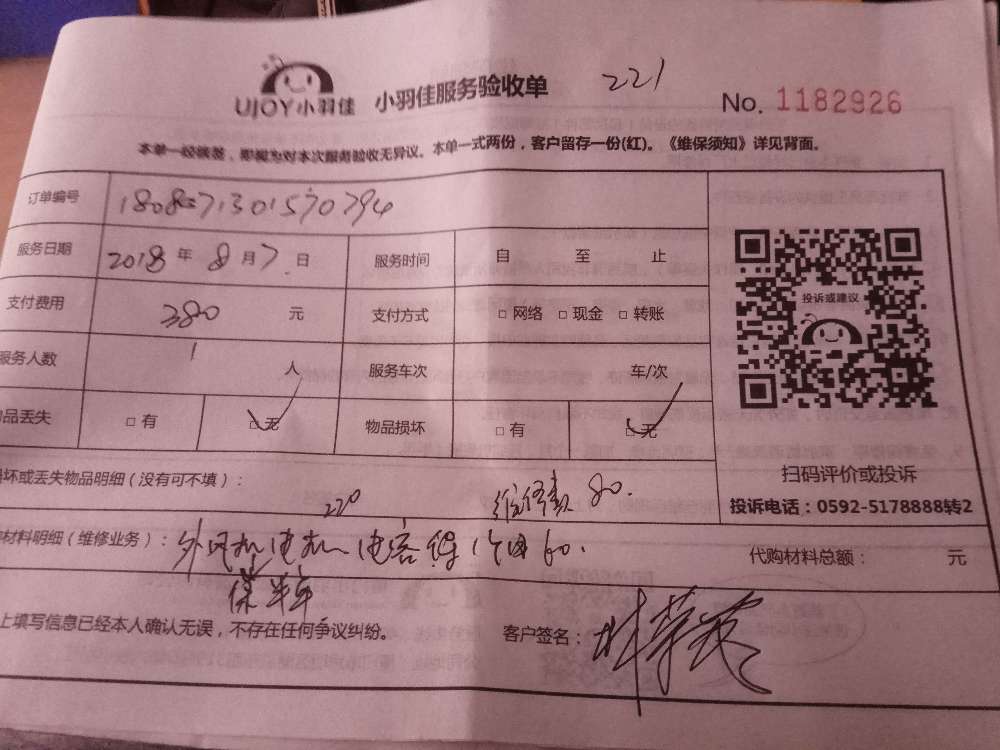 UJOY小羽佳 小羽佳服务验收单 221 No. 1182926
本单一经签, 即视为对本次服务验收无异议。本单一式两份，客户留存一份(红)。《维保须知》详见背面。
订单编号
服务日期 2018 年 8 月 7 日 服务时间 自 至 止
支付费用 380 元 支付方式 □ 网络 □ 现金 □ 转账
投诉或建议
服务人数 1 人 服务车次 车/次
品丢失 □ 有 □ 无 物品损坏 □ 有 □ 无
扫码评价或投诉
坏或丢失物品明细（没有可不填）：
220 维修费 80.
投诉电话：0592-5178888转2
材料明细（维修业务）： 外风机电机 电容 60.
代购材料总额： 元
保半年
上填写信息已经本人确认无误，不存在任何争议纠纷。 客户签名：